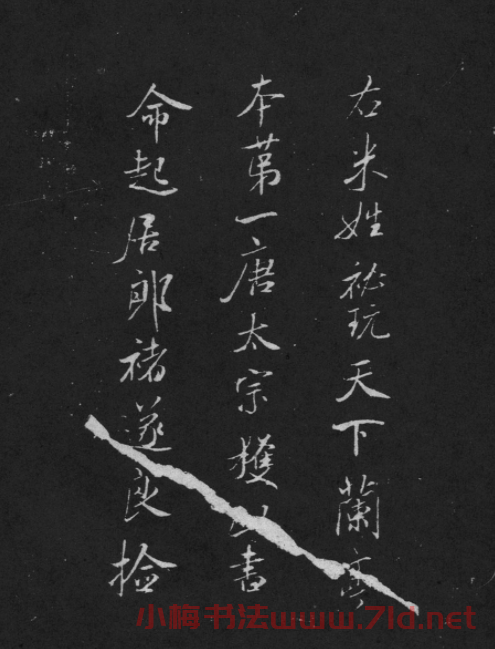 右米姓祕玩天下蘭亭
本第一唐太宗獲此書
命起居郎褚遂良撿
小梅书法www.7ld.net